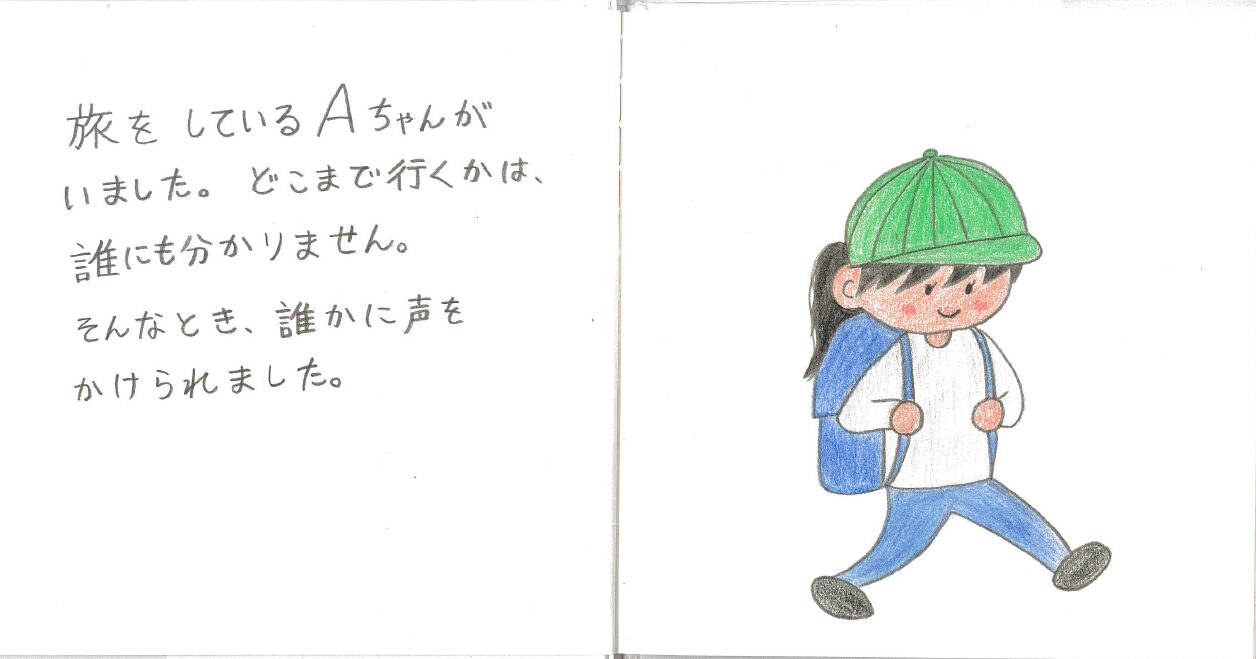 旅をしているAちゃんが
いました。どこまで行くかは、
誰にも分かりません。
そんなとき、誰かに声を
かけられました。